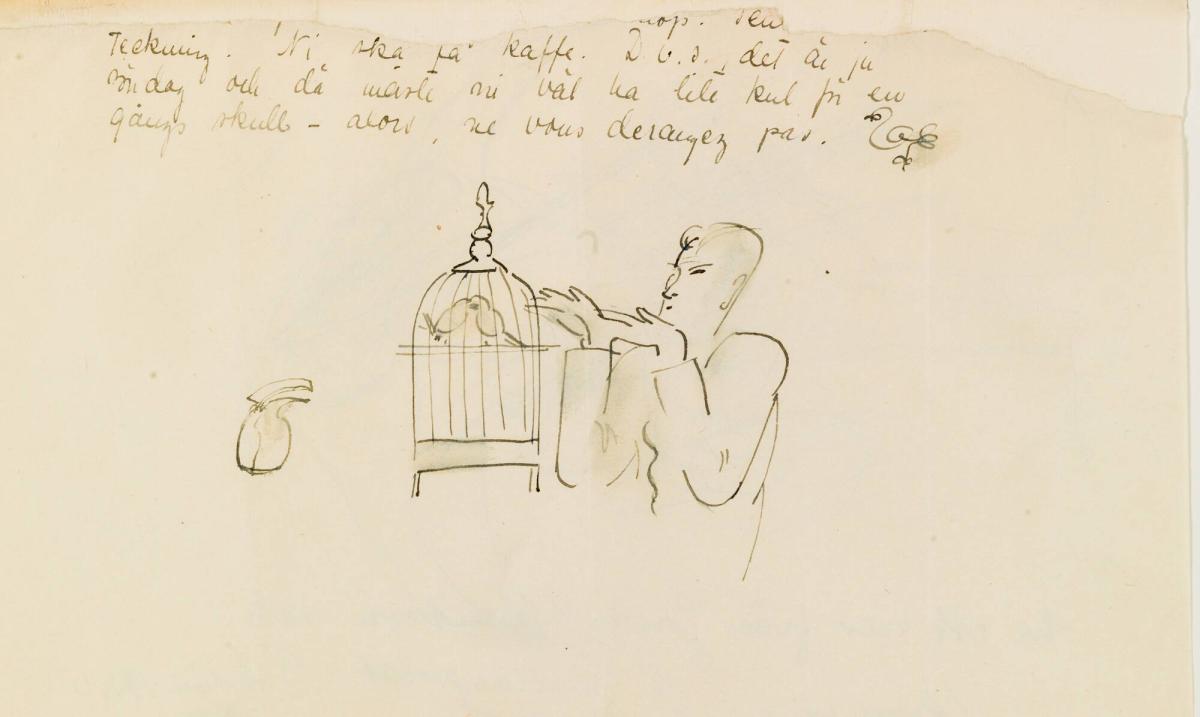 Teckning. Ni ska få kaffe. D.v.s., det är ju
söndag och då måste ni väl ha lite kul för en
gångs skull – alors, ne vous derangez pas.